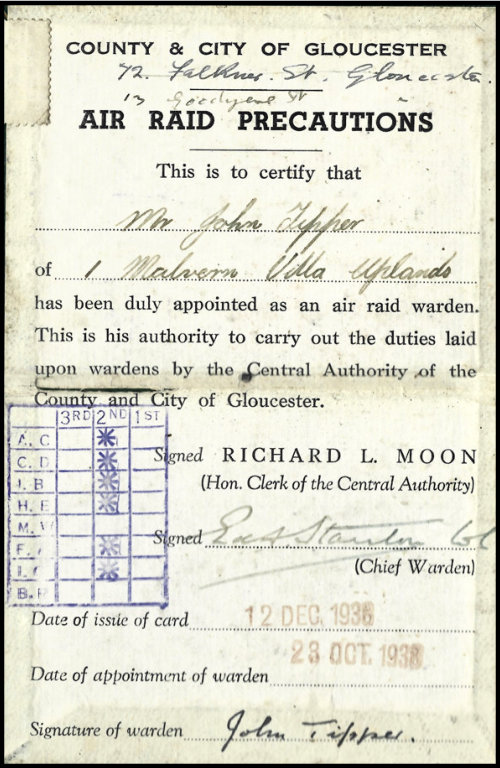 COUNTY & CITY OF GLOUCESTER
72. Falkner. St. Gloucester.
13 Goodyere St
AIR RAID PRECAUTIONS
This is to certify that
Mr John Tipper
of 1 Malvern Villa Uplands
has been duly appointed as an air raid warden.
This is his authority to carry out the duties laid
upon wardens by the Central Authority of the
County and City of Gloucester.
3RD 2ND 1ST
A. C
C. D
I. B
H. E
M.
F.
I.
B. R
Signed RICHARD L. MOON
(Hon. Clerk of the Central Authority)
Signed
(Chief Warden)
Date of issue of card 12 DEC. 1938
23 OCT. 1938
Date of appointment of warden
Signature of warden John Tipper.